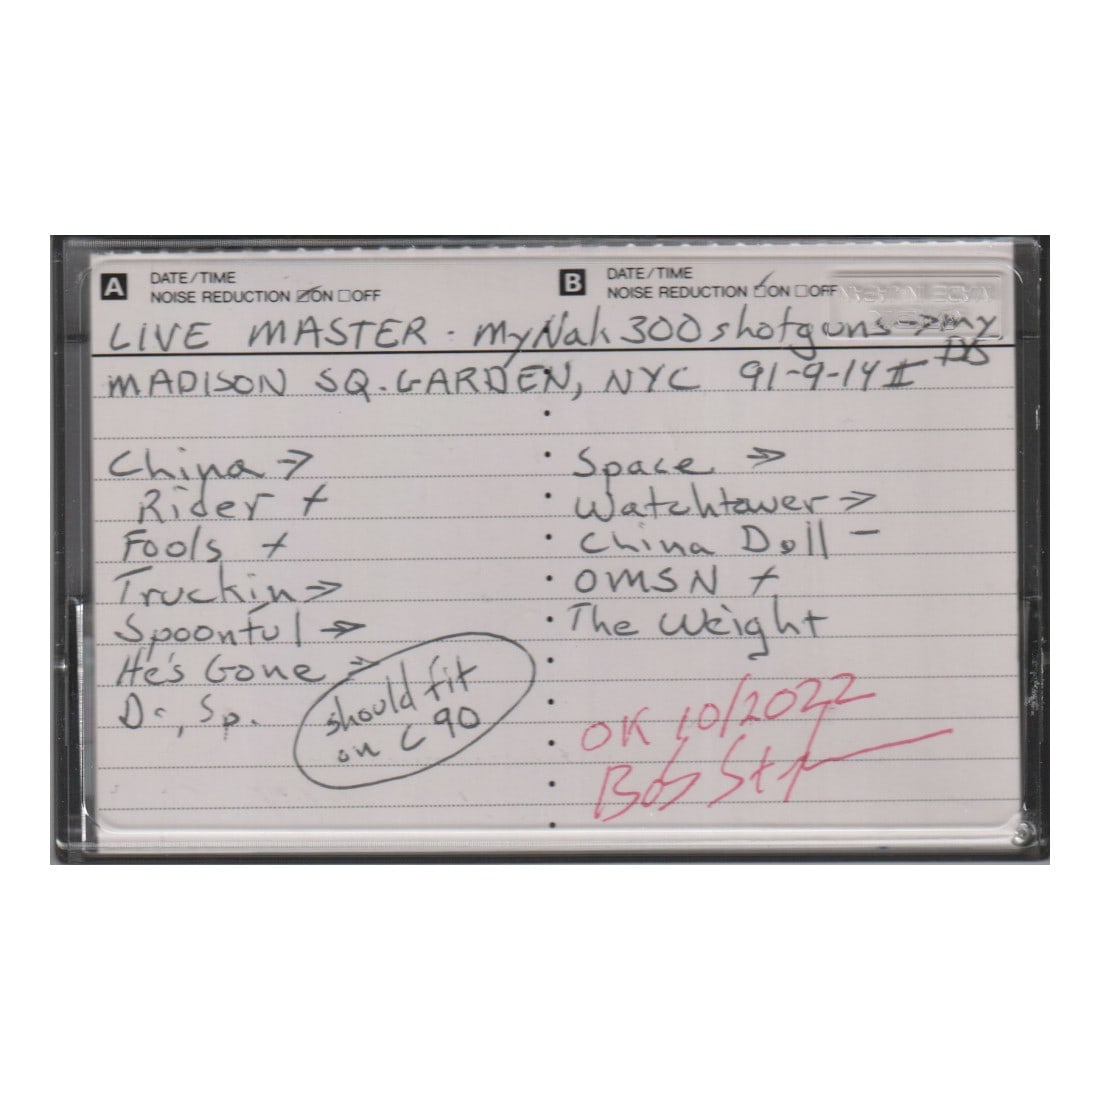 A DATE/TIME
NOISE REDUCTION ON OFF
B DATE/TIME
NOISE REDUCTION ON OFF
LIVE MASTER - my Nak 300 shotguns → my D5
MADISON SQ. GARDEN, NYC 91-9-14 II
China →
Rider +
Fools +
Truckin →
Spoonful →
He's Gone →
Dr, Sp.
should fit
on C 90
Space →
Watchtower →
China Doll -
OMSN +
The Weight
OK 10/2022
Bob